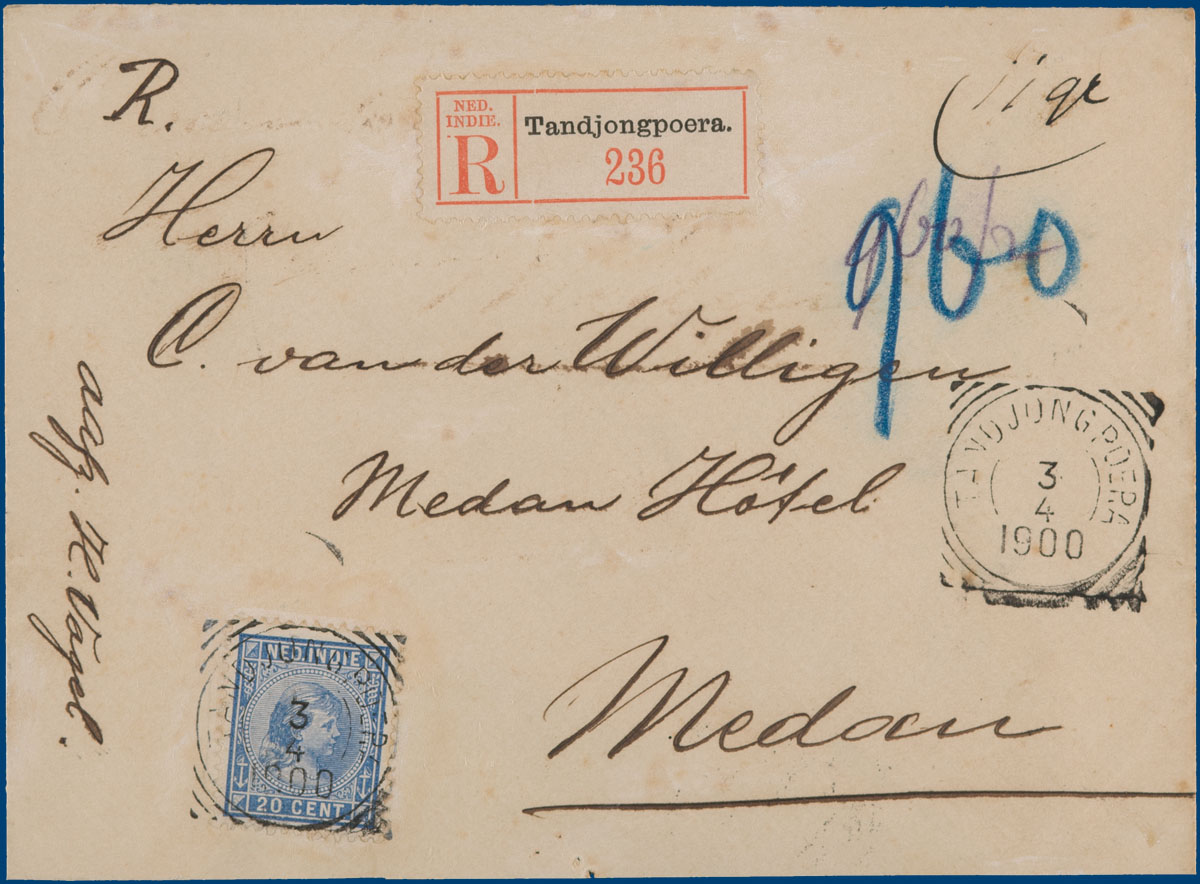 R.
NED.
INDIE.
R
Tandjongpoera.
236
11 gr
Herrn
960
C. van der Willigen
Medan Hôtel
TANDJONGPOERA
3
4
1900
afz. H. Vogel.
NED. INDIE
20 CENT
TANDJONGPOERA
3
4
1900
Medan